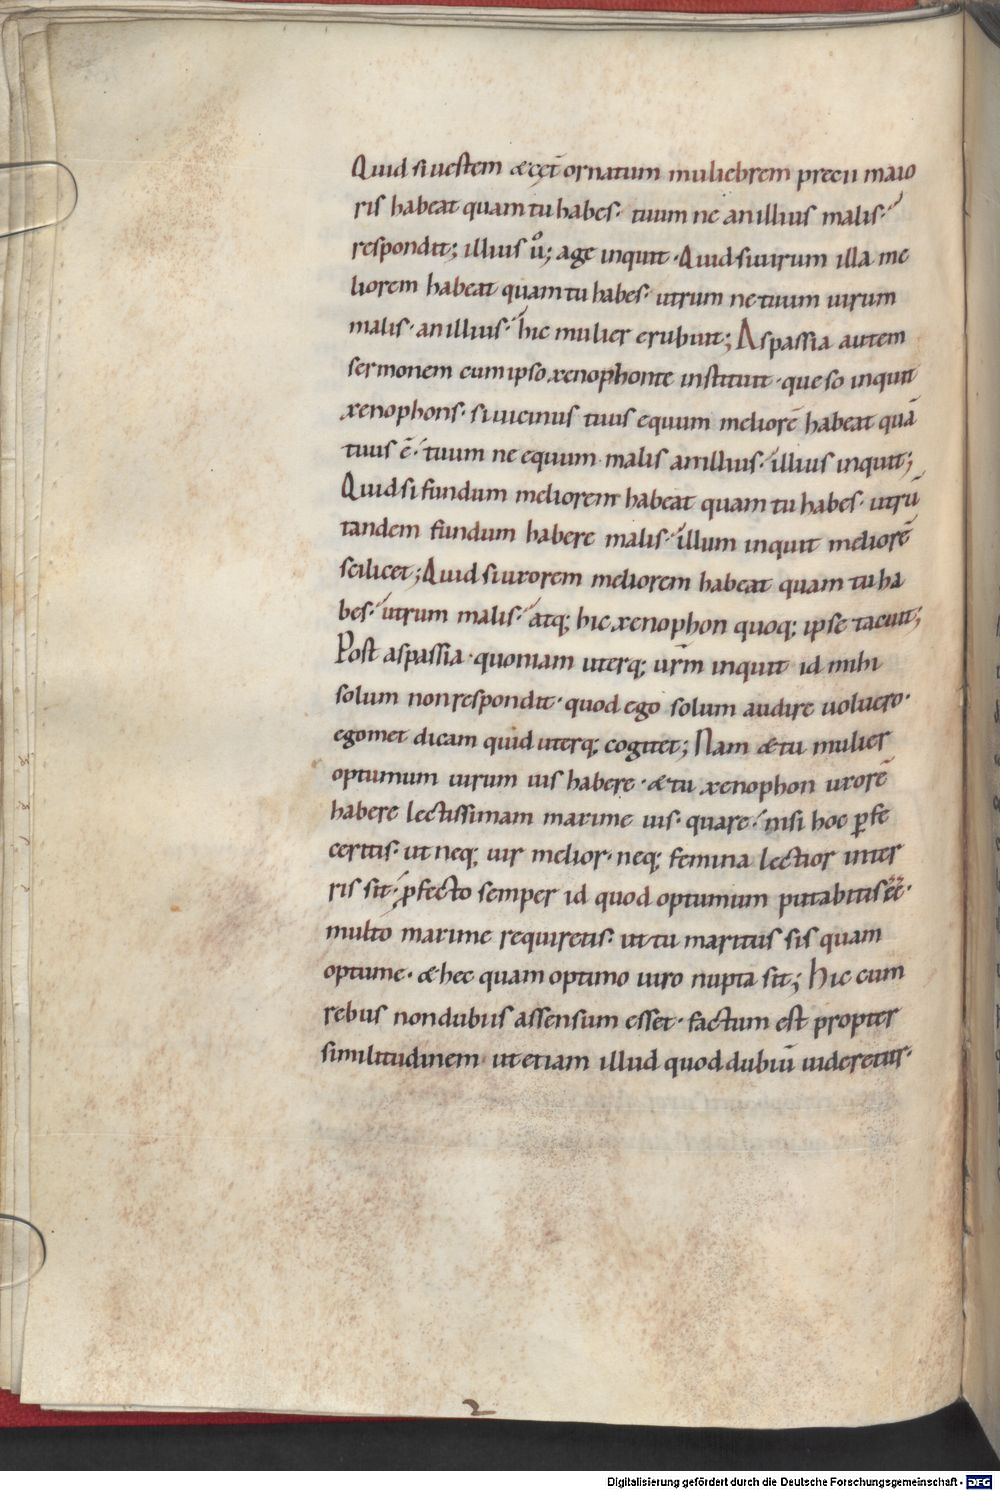 Quid si uestem & cet̄ ornatum muliebrem precii maio
ris habeat quam tu habes· tuum ne an illius malis·
respondit; illius ů; age inquit· Quid si uirum illa me
liorem habeat quam tu habes· utrum ne tuum uirum
malis· an illius· hic mulier erubuit; Aspassia autem
sermonem cum ipso xenophonte instituit· queso inquit
xenophons· si uicinus tuus equum meliorē habeat quā
tuus ē· tuum ne equum malis an illius· illius inquit;
Quid si fundum meliorem habeat quam tu habes· utrū
tandem fundum habere malis· illum inquit meliorē
scilicet; Quid si uxorem meliorem habeat quam tu ha
bes· utrum malis· atq; hic xenophon quoq; ipse tacuit;
Post aspassia· quoniam uterq; ur̄m inquit id mihi
solum non respondit· quod ego solum audire uoluero·
egomet dicam quid uterq; cogitet; Nam & tu mulier
optumum uirum uis habere· & tu xenophon uxorē
habere lectissimam maxime uis· quare· nisi hoc ꝑfe
ceritis· ut neq; uir melior· neq; femina lectior inter
ris sit· ꝓfecto semper id quod optumum putabitis eē·
multo maxime requiretis· ut tu maritus sis quam
optume· & hec quam optimo uiro nupta sit; hic cum
rebus non dubiis assensum esset· factum est propter
similitudinem ut etiam illud quod dubiū uideretur·
2
Digitalisierung gefördert durch die Deutsche Forschungsgemeinschaft - DFG